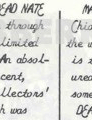 DEAD NATE
through
limited
An absol-
cent,
llectors'
h was
MA
Chia
the
is s
urea
some
DEA